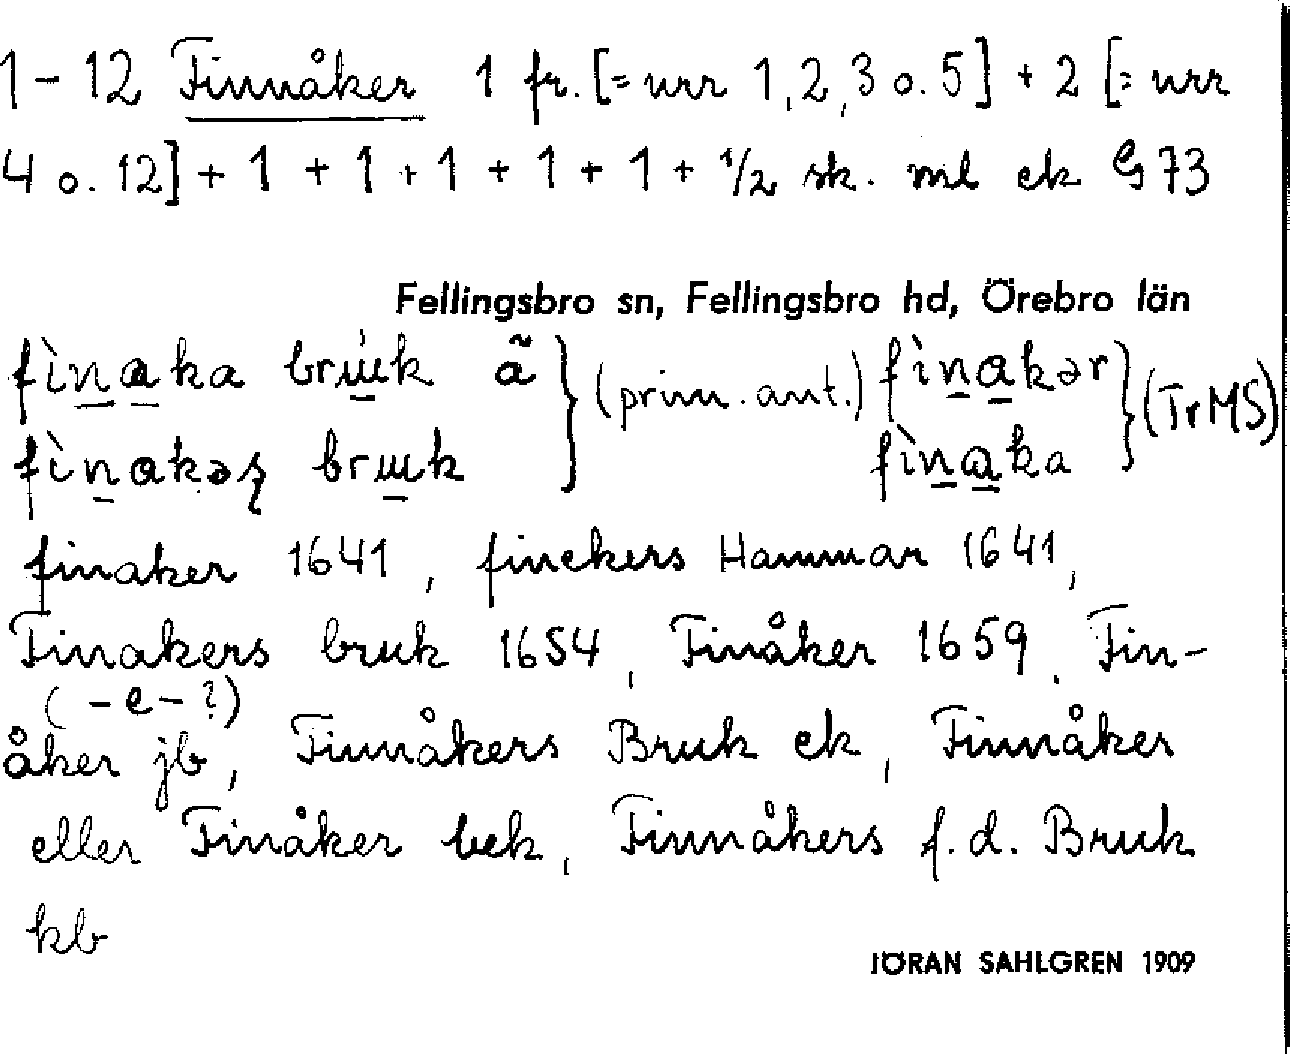 1 - 12 Finnåker 1 fr. [= nrr 1, 2, 3 o. 5] + 2 [= nrr
4 o. 12] + 1 + 1 + 1 + 1 + 1 + 1/2 sk. ml ek G 73
Fellingsbro sn, Fellingsbro hd, Örebro län
fìnaka bruk ã } (prim. ant.) fìnakər } (Tr MS)
fìnakəʂ bruk fìnaka
finaker 1641, finckers Hammar 1641,
Finakers bruk 1654, Finåker 1659, Fin-
(-e-?)
åker jb, Finnåkers Bruk ek, Finnåker
eller Finåker bek, Finnåkers f.d. Bruk
kb
JÖRAN SAHLGREN 1909